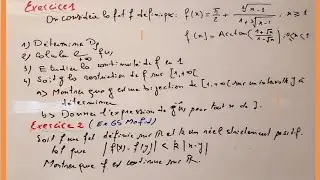 Exercice 1
On considère la fct f définie par : f(x) = π/2 + ∛(x-1) / (1+2∛(x-1)), x ≥ 1
f(x) = Arctan((1+√x)/(1-√x)), 0 ≤ x < 1
1) Détermine Df
2) Calcule lim f(x) +∞
3) Etudier la continuité de f en 1
4) Soit g la restriction de f sur [1,+∞[
a> Montrer que g est une bijection de [1,+∞[ sur un intervalle J à
déterminer
b> Donner l'expression de g⁻¹(x) pour tout x de J.
Exercice 2 (
Soit f une fct définie sur ℝ et k un réel strictement positif.
tel que |f(x) - f(y)| < k |x-y|
Montrer que f est continue sur ℝ.